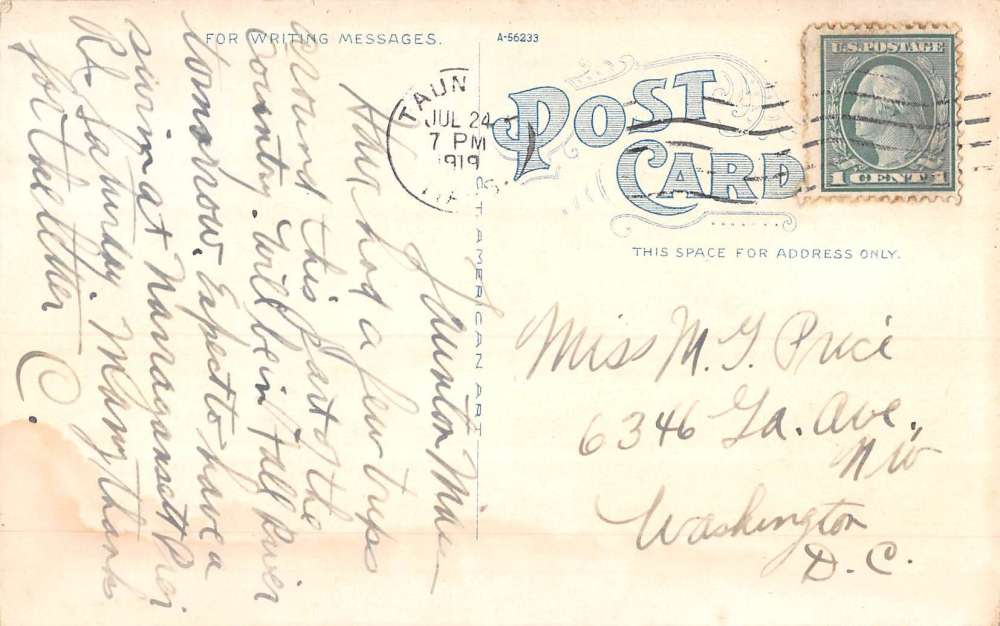 FOR WRITING MESSAGES.
A-56233
POST
CARD
THIS SPACE FOR ADDRESS ONLY.
U.S. POSTAGE
1 CENT 1
TAUN
JUL 24
7 PM
1919
MASS
AMERICAN ART
Taunton Mass
Have had a few trips
around this part of the
country. Will be in Fall River
tomorrow. Expect to have a
swim at Narragansett Pier
R.I. Saturday. Many thanks
for the letter
C.
Miss M. G. Price
6346 Ga. Ave.,
NW
Washington
D.C.